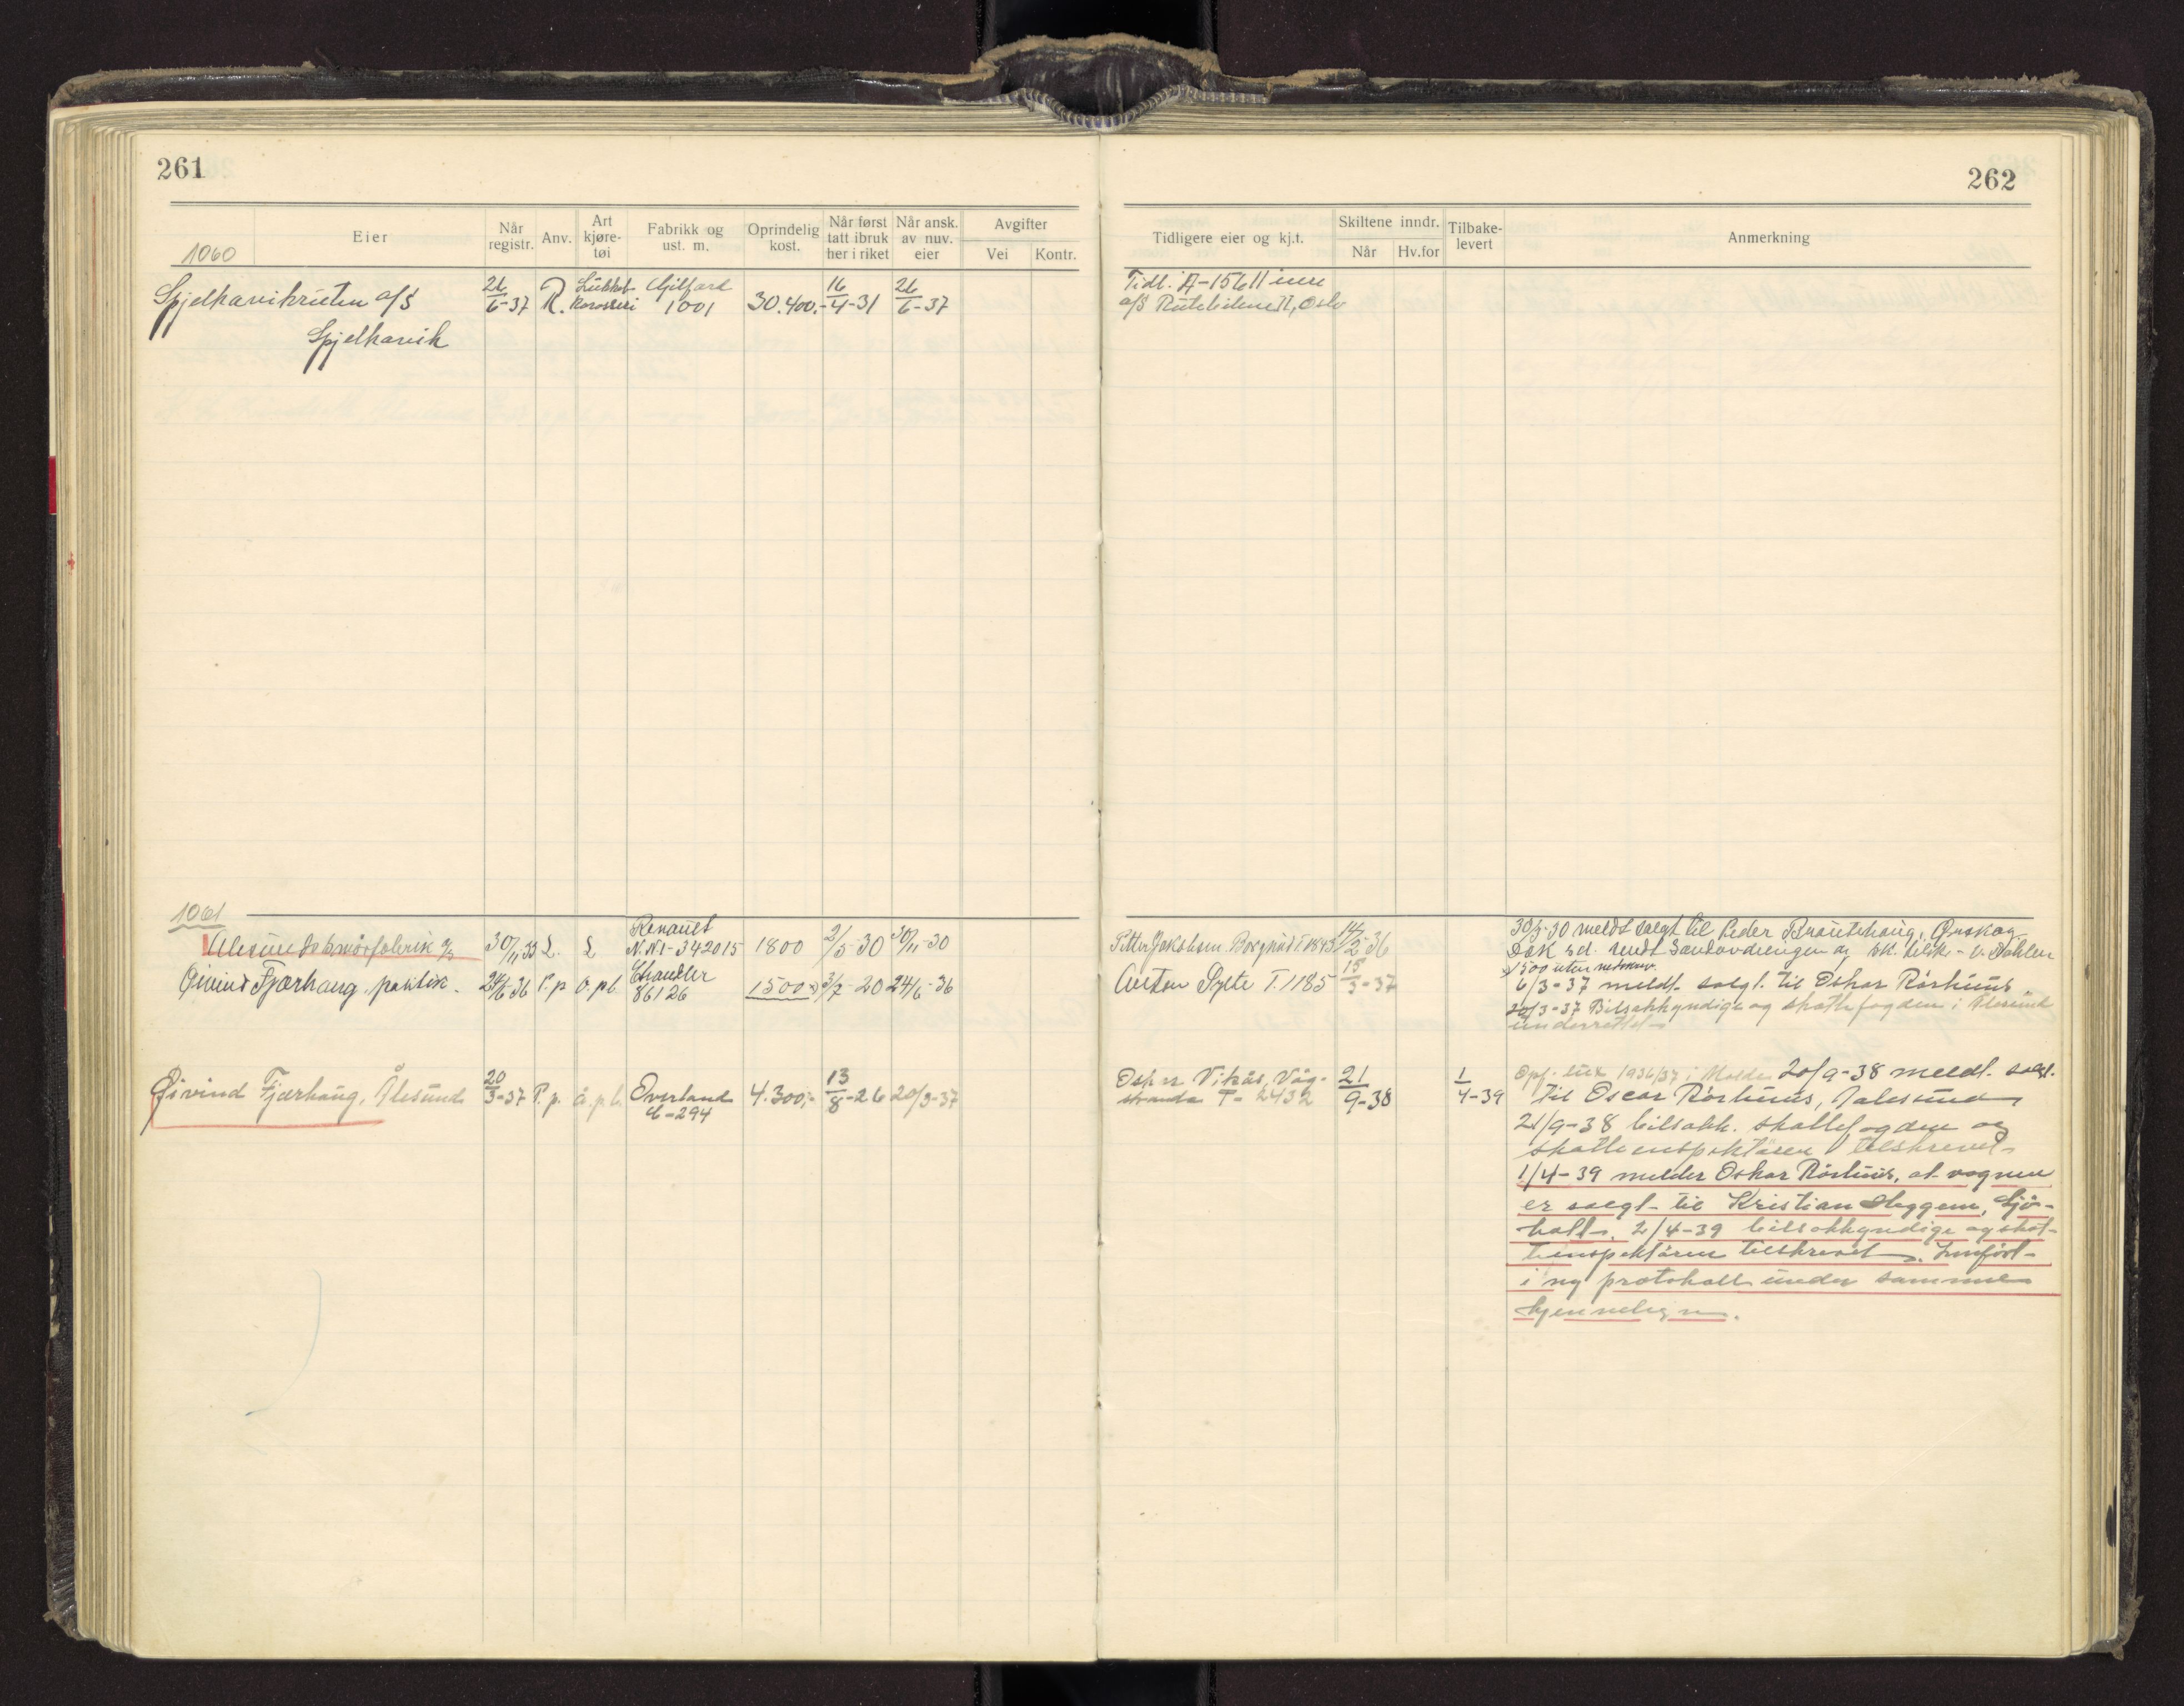 261
Eier
Når registr.
Anv.
Art kjøretøi
Fabrikk og ust. m.
Oprindelig kost.
Når først tatt ibruk her i riket
Når ansk. av nuv. eier
Avgifter
Vei
Kontr.
1060
Spjelkavikruten a/s 26/6-37 R. Lukket Gilford 16/4-31 26/6-37
Karosseri 1001 30.400.-
Spjelkavik
1061
Renault
Alesunds smørfabrik a/s 30/11-33 L. L N.N1-342015 1800 2/5-30 30/11-30
Øivind Fjærhaug. politik. 24/6-36 P.p å.pb. Chandler 86126 1500 3/7-20 24/6-36
Øivind Fjærhaug, Ålesund 20/3-37 P.p. å.p.b. Overland 4.300,- 13/8-26 20/3-37
4-294
262
Tidligere eier og kj.t.
Skiltene inndr.
Når
Hv.for
Tilbakelevert
Anmerkning
Tidl. A-15611
a/s Rutebilene, Oslo
Petter Jakobsen. Borgund T. 1843 14/2-36
Sylte T. 1185 15/3-37
Oskar Vikås, Våg-
stranda T-2432 21/9-38 1/4-39
meldt solgt til Peder Brautehaug, Ørskog
1500 uten
6/3-37 meldt solgt til Oskar Rørhuus
20/3-37 Bilsakkyndige og skattefogden i Ålesund
underrettet
1936/37 i Molde 20/9-38 meldt solgt
til Oscar Rørhuus, Aalesund
21/9-38 bilsakk. skattefogden og
skatteinspektøren tilskrevet
1/4-39 melder Oskar Rørhuus, at vognen
er solgt til Kristian Heggem, Sjø-
holt. 2/4-39 bilsakkyndige og skat-
teinspektøren tilskrevet. Innført
i ny protokoll under samme
kjennetegn.